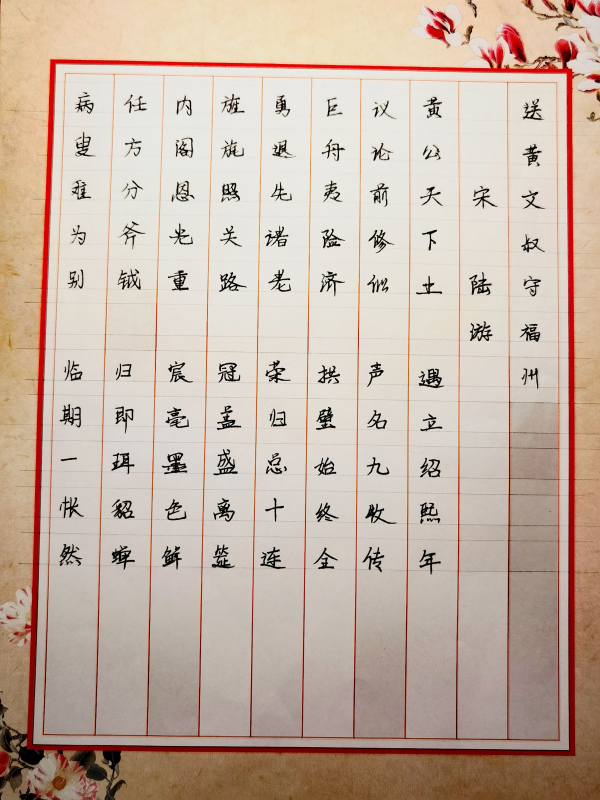 送黄文叔守福州
宋 陆游
黄公天下士 遇立绍熙年
议论前修似 声名九牧传
巨舟夷险济 拱璧始终全
勇退先诸老 荣归总十连
旌旄照关路 冠盖盛离筵
内阁恩光重 宸毫墨色鲜
任方分斧钺 归即珥貂蝉
病叟难为别 临期一怅然